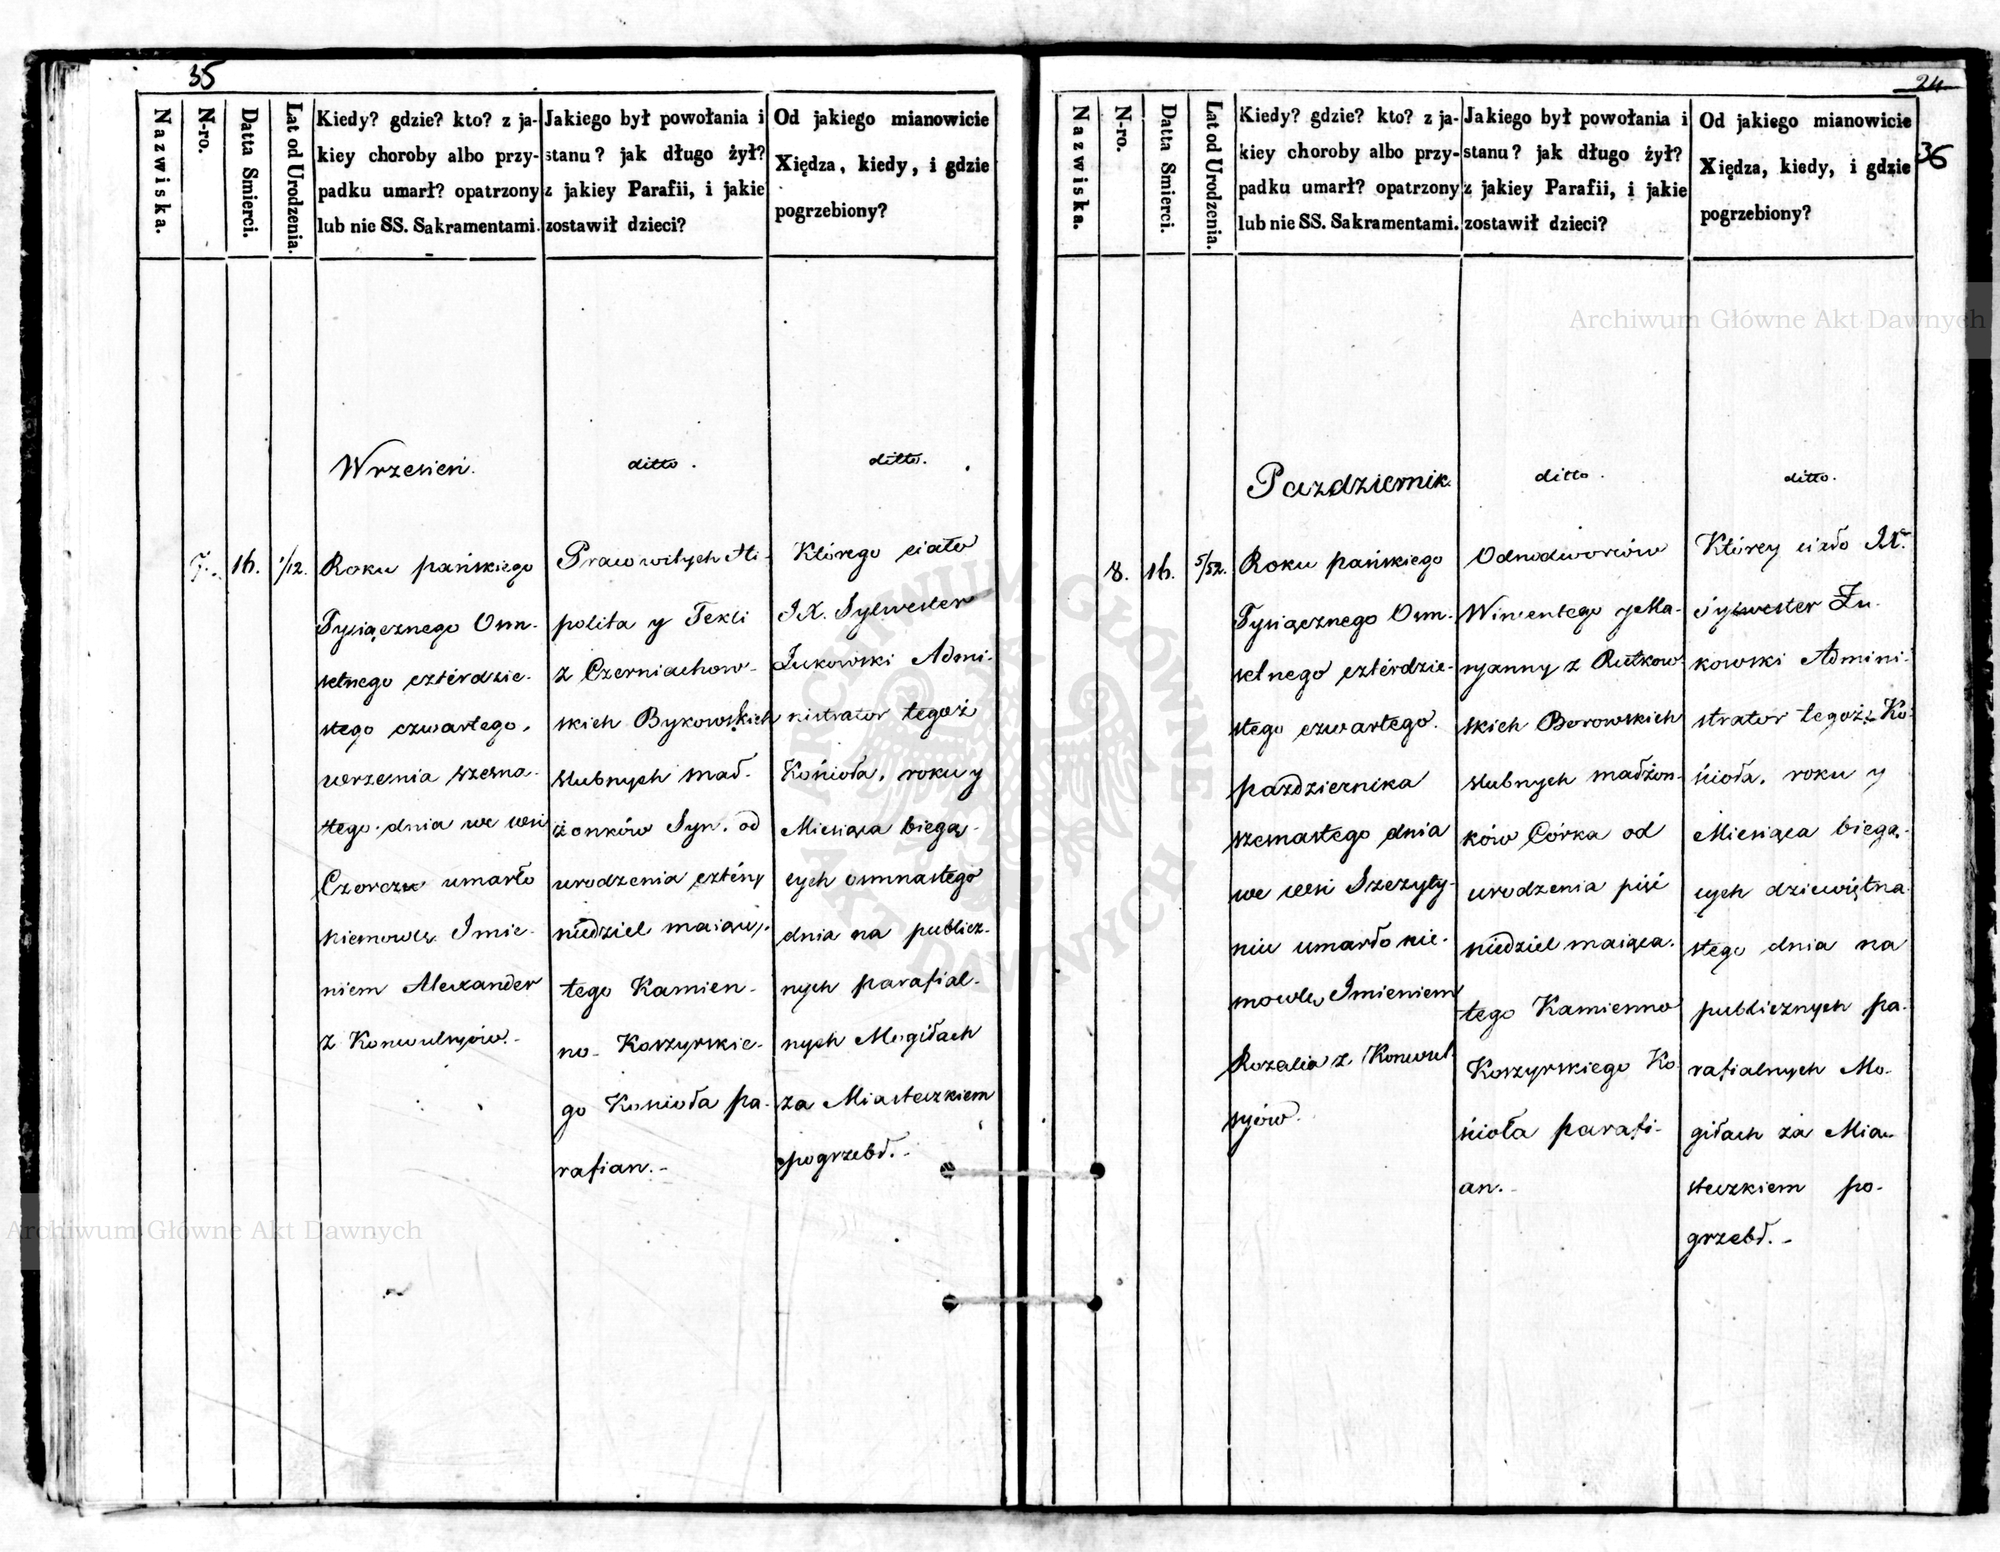 35
Nazwiska.
N-ro.
Datta Smierci.
Lat od Urodzenia.
Kiedy? gdzie? kto? z ja-
kiey choroby albo przy-
padku umarł? opatrzony
lub nie SS. Sakramentami.
Jakiego był powołania i
stanu? jak długo żył?
z jakiey Parafii, i jakie
zostawił dzieci?
Od jakiego mianowicie
Xiędza, kiedy, i gdzie
pogrzebiony?
Wrzesień.
ditto.
ditto.
7.
16.
1/12.
Roku pańskiego
Tysiącznego Osm-
setnego cztérdzie-
stego czwartego,
września szesna-
stego dnia we wsi
umarło
niemowle Imie-
niem Alexander
z Konwulsyów.-
Prawowitych Hi-
polita y Tekli
z Czerniachow-
skich Bykowskich
slubnych mał-
żonków Syn, od
urodzenia cztéry
niedziel maiący.
tego Kamien-
no- Koszyrskie-
go Kościoła pa-
rafian.-
Którego ciało
JX. Sylwester
Żukowski Admi-
nistrator tegoż
Kościoła, roku y
Miesiąca biegą-
cych osmnastego
dnia na publicz-
nych parafial-
nych Mogiłach
za Miasteczkiem
pogrzebł.-
24
36
Nazwiska.
N-ro.
Datta Smierci.
Lat od Urodzenia.
Kiedy? gdzie? kto? z ja-
kiey choroby albo przy-
padku umarł? opatrzony
lub nie SS. Sakramentami.
Jakiego był powołania i
stanu? jak długo żył?
z jakiey Parafii, i jakie
zostawił dzieci?
Od jakiego mianowicie
Xiędza, kiedy, i gdzie
pogrzebiony?
Pazdziernik.
ditto.
ditto.
8.
16.
5/52.
Roku pańskiego
Tysiącznego Osm-
setnego cztérdzie-
stego czwartego.
pazdziernika
szesnastego dnia
we wsi Szczyty-
niu umarło nie-
mowle Imieniem
Rozalia z Konwul-
syów.
Odnodworców
Wincentego y Ma-
ryanny z Rutkow-
skich Borowskich
slubnych małżon-
ków Córka od
urodzenia pięć
niedziel maiąca.
tego Kamienno
Koszyrskiego Ko-
ścioła parafi-
an.-
Którey ciało JX.
Sylwester Żu-
kowski Admini-
strator tegoż Ko-
ścioła, roku y
Miesiąca biegą-
cych dziewiętna-
stego dnia na
publicznych pa-
rafialnych Mo-
giłach za Mia-
steczkiem po-
grzebł.-
Archiwum Główne Akt Dawnych
Archiwum Główne Akt Dawnych
ARCHIWUM GŁÓWNE
AKT DAWNYCH